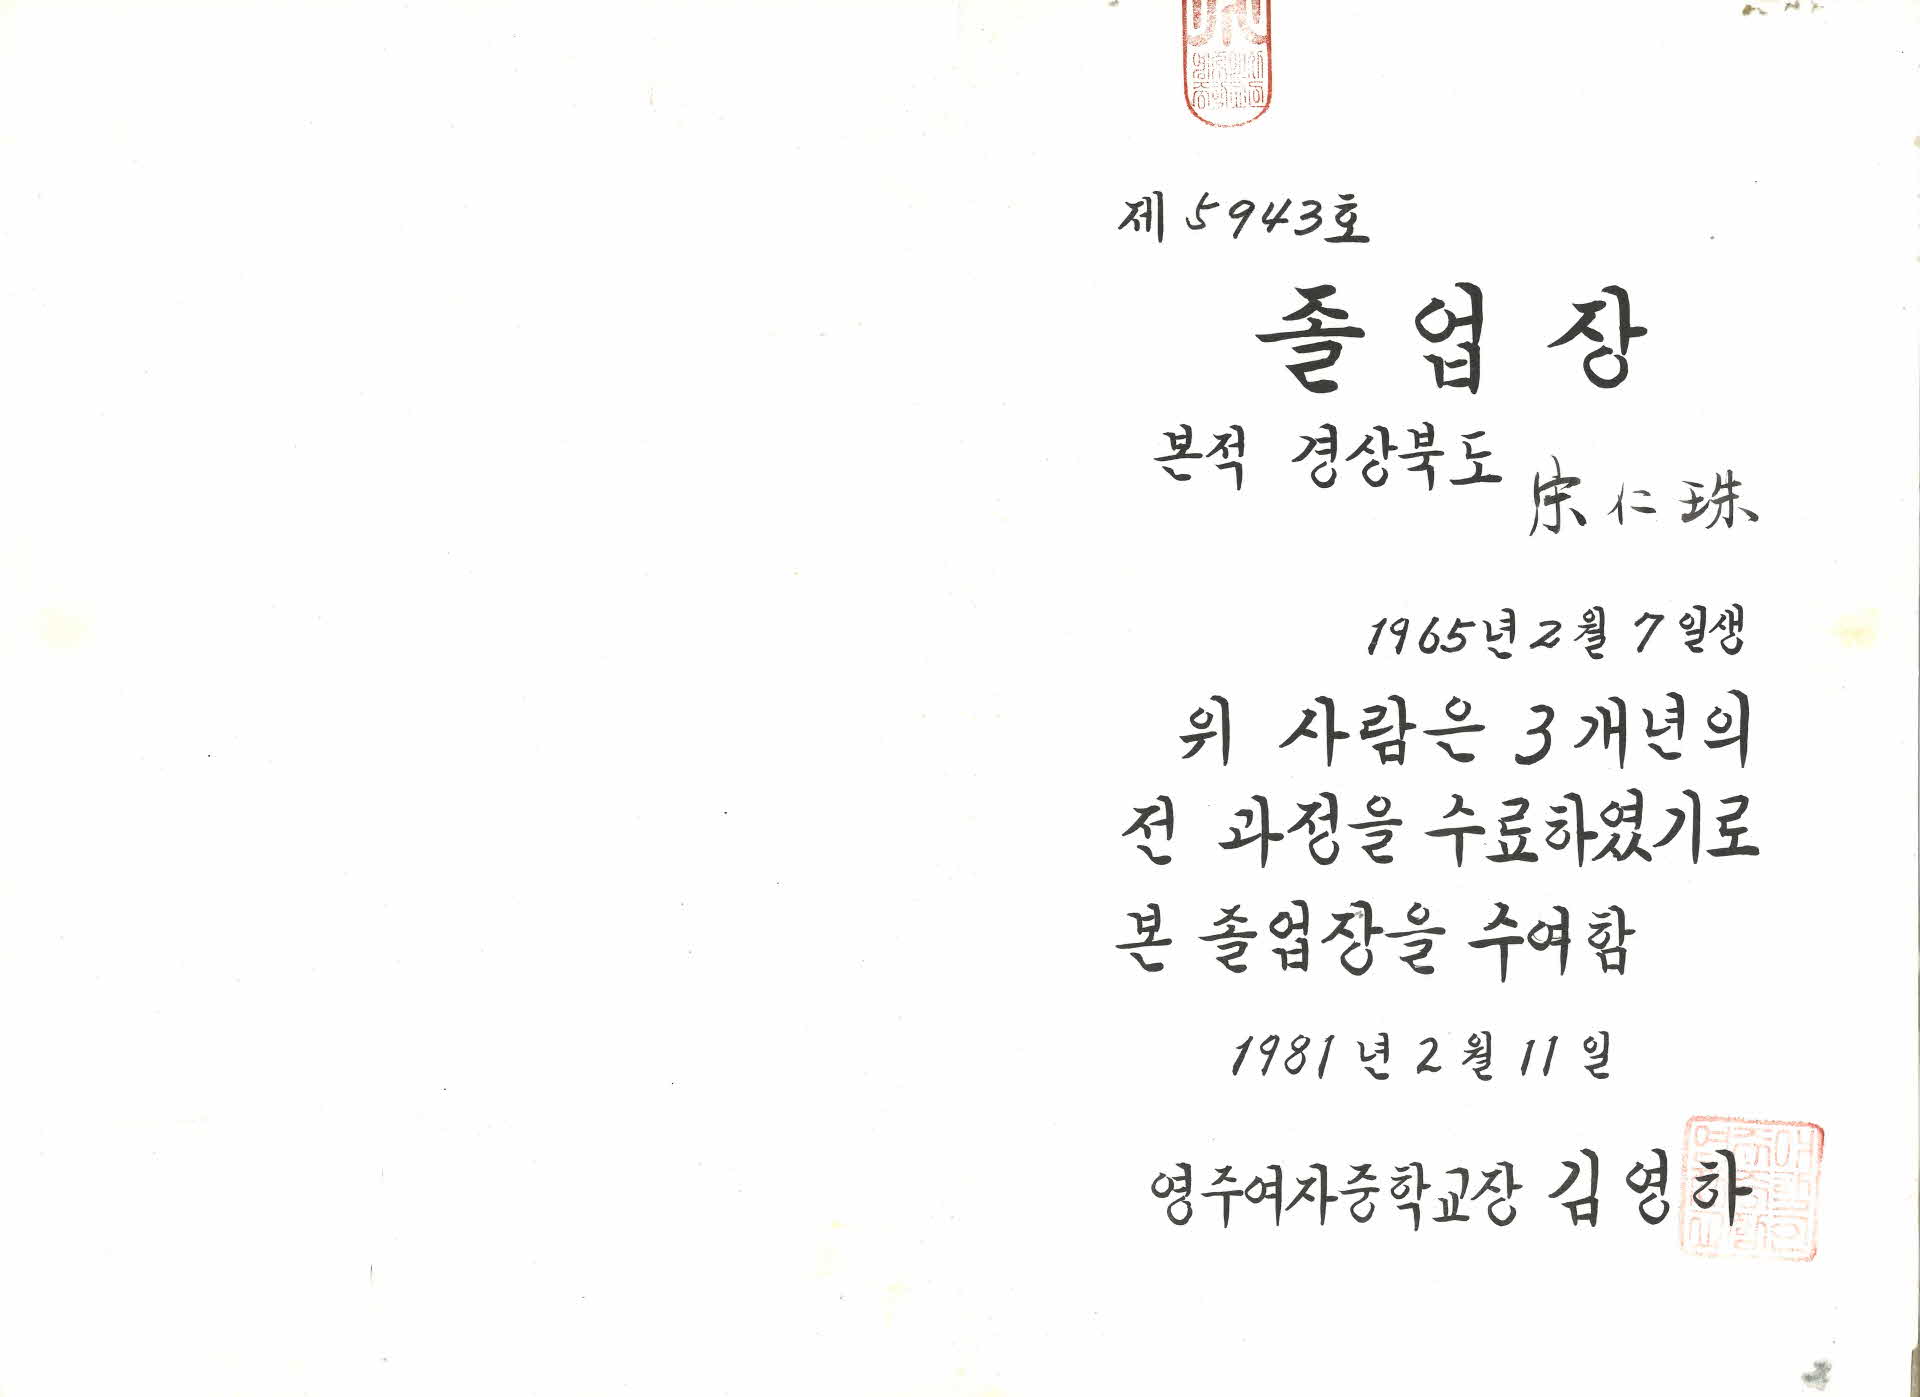 제 5943호
졸업장
본적 경상북도
宋仁珠
1965년 2월 7일생
위 사람은 3개년의
전 과정을 수료하였기로
본 졸업장을 수여함
1981년 2월 11일
영주여자중학교장 김영하